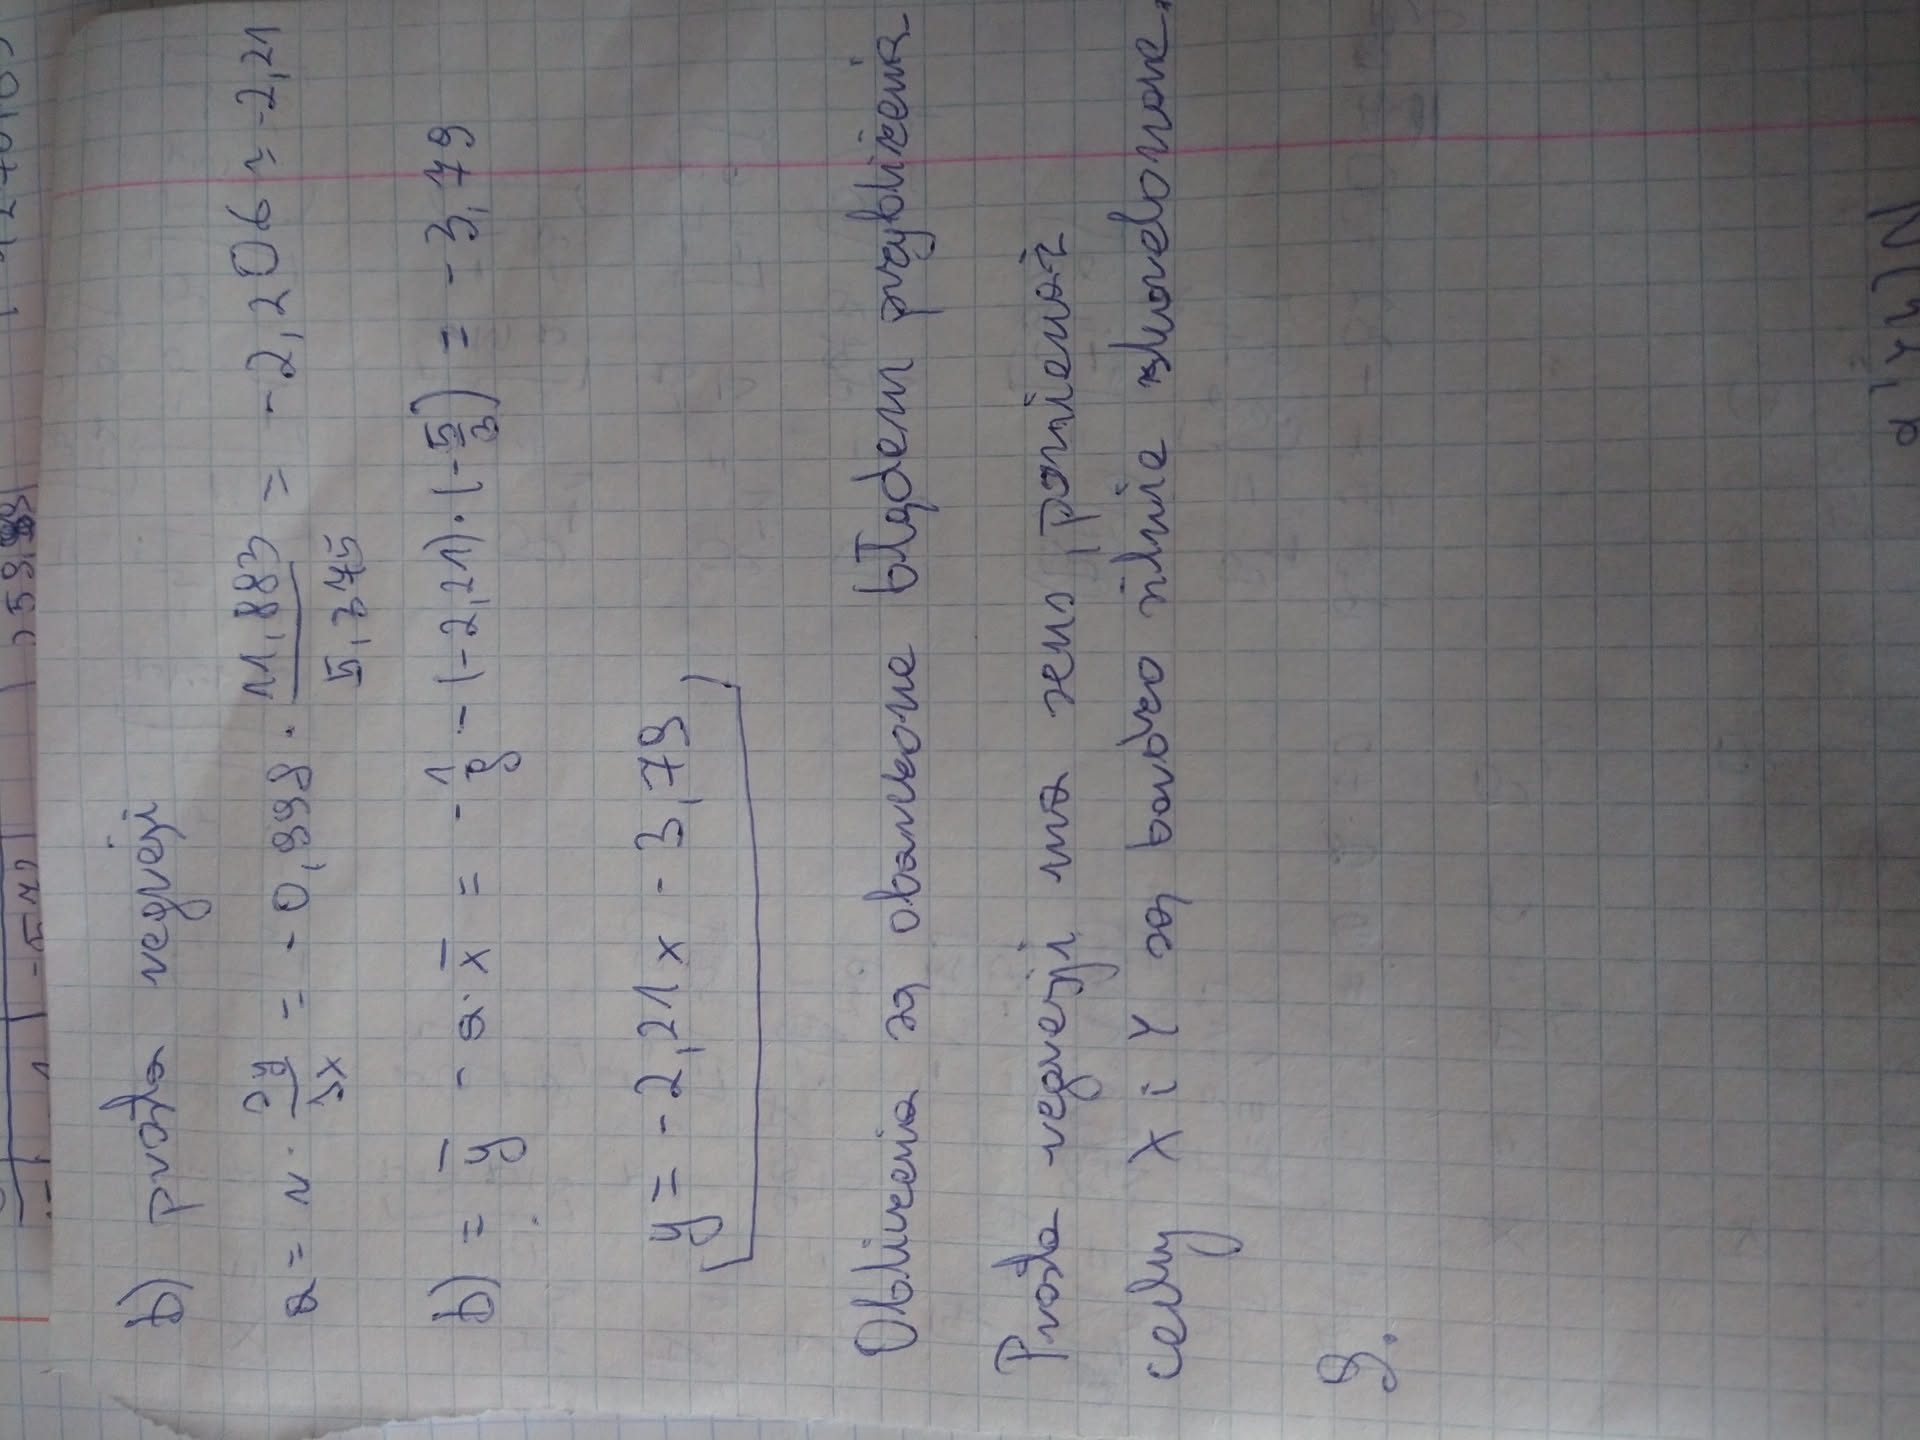 b) prosta regresji
a = r · Sy/Sx = -0,998 · 11,883/5,375 = -2,206 ≈ -2,21
b) = y̅ - a·x̅ = -1/9 - (-2,21)·(-5/3) = -3,79
y = -2,21x - 3,79
Obliczenia są obarczone błądem przybliżenia
Prosta regresji ma sens, ponieważ
cechy X i Y są bardzo silnie skorelowane.
9.